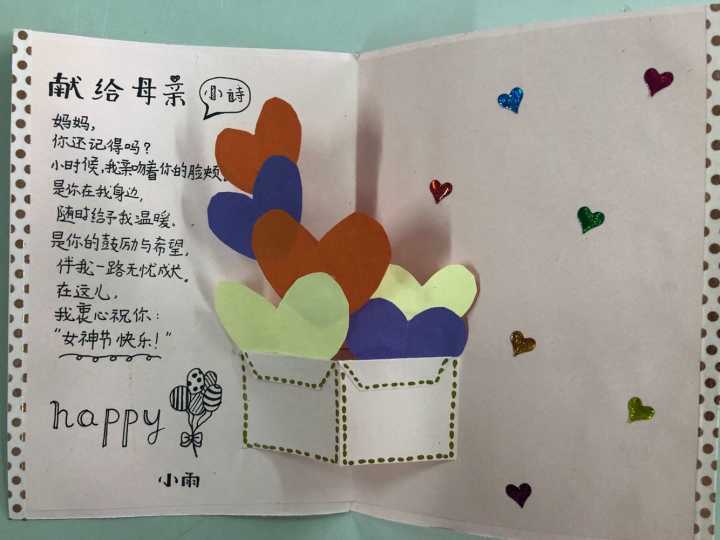 献给母亲
小诗
妈妈,
你还记得吗?
小时候,我亲吻着你的脸颊,
是你在我身边,
随时给予我温暖。
是你的鼓励与希望,
伴我一路无忧成长。
在这儿,
我衷心祝你:
"女神节快乐!"
happy
小雨